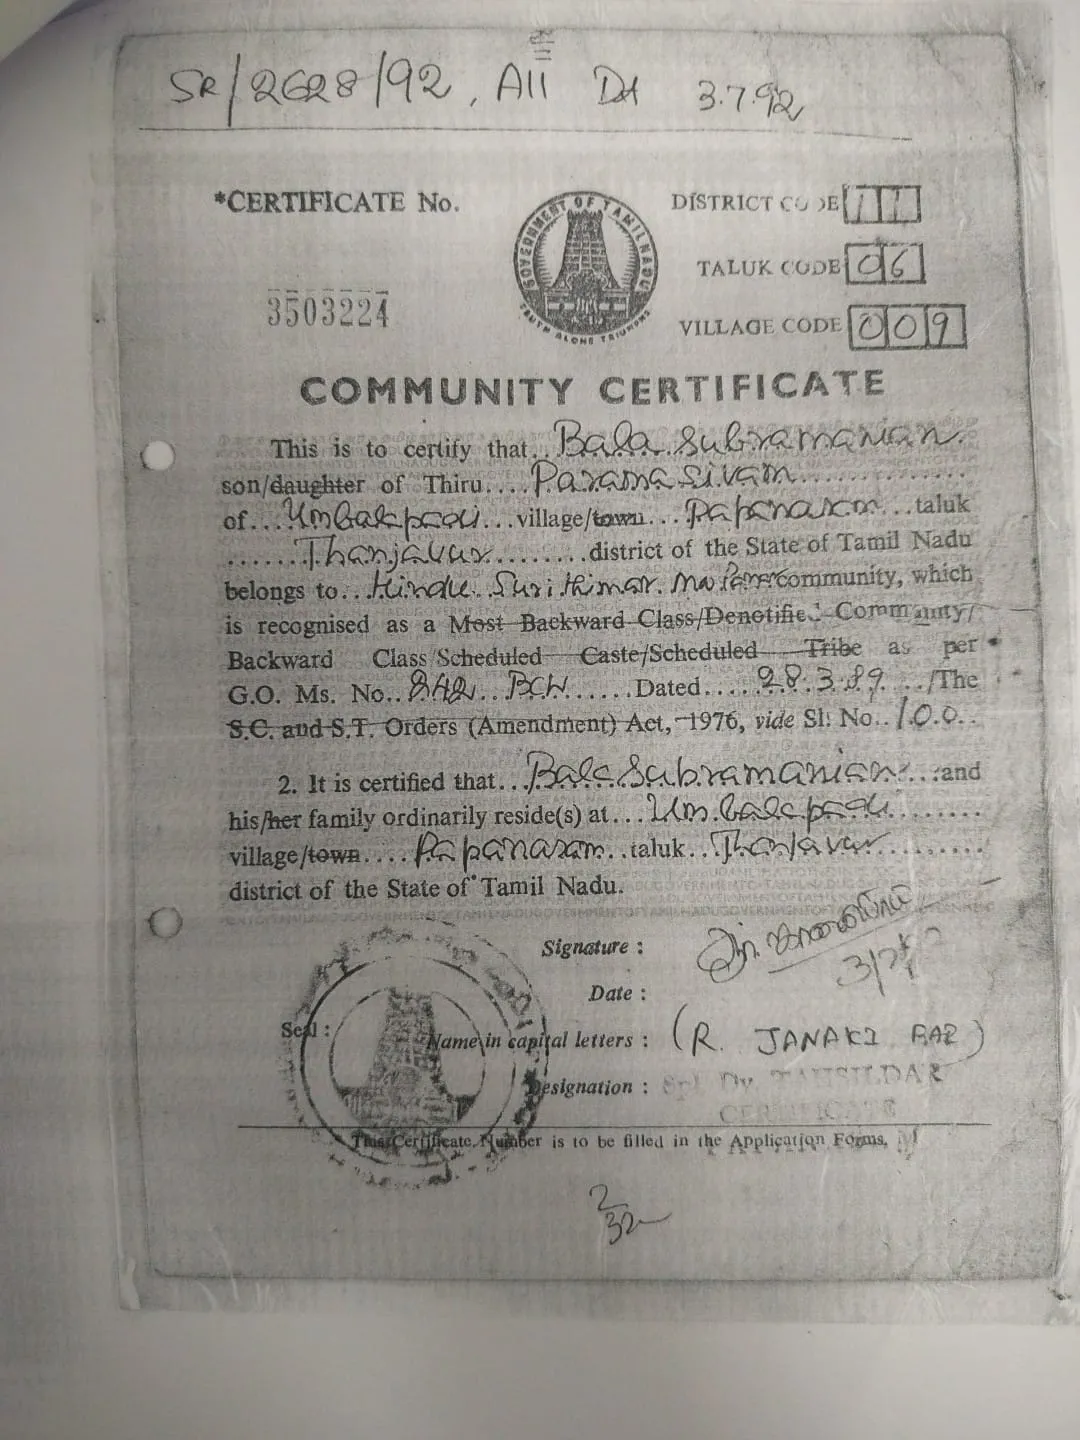 SR/2628/92, A11 Dt 3.7.92
*CERTIFICATE No.
GOVERNMENT OF TAMILNADU
TRUTH ALONE TRIUMPHS
DISTRICT CODE 11
TALUK CODE 06
3503224
VILLAGE CODE 009
COMMUNITY CERTIFICATE
This is to certify that.. Bala Subramanian.
son/daughter of Thiru.... Parama Sivam..........
of... Umbalapadi...village/town... Papanasam...taluk
.......Thanjavur.........district of the State of Tamil Nadu
belongs to... Hindu. community, which
is recognised as a Most Backward Class/Denotified Community/
Backward Class/Scheduled Caste/Scheduled Tribe as per
G.O. Ms. No.. 242... BCW......Dated.....28.3.89.../The
S.C. and S.T. Orders (Amendment) Act, 1976, vide Sl. No..100..
2. It is certified that...Bala Subramanian....and
his/her family ordinarily reside(s) at...Umbalapadi.........
village/town.... Papanasam..taluk..Thanjavur...........
district of the State of Tamil Nadu.
Signature :
Date :
Seal :
Name in capital letters : (R. JANAKI )
Designation : Spl Dy. TAHSILDAR
CERTIFICATE
This Certificate Number is to be filled in the Application Forms.
2
32